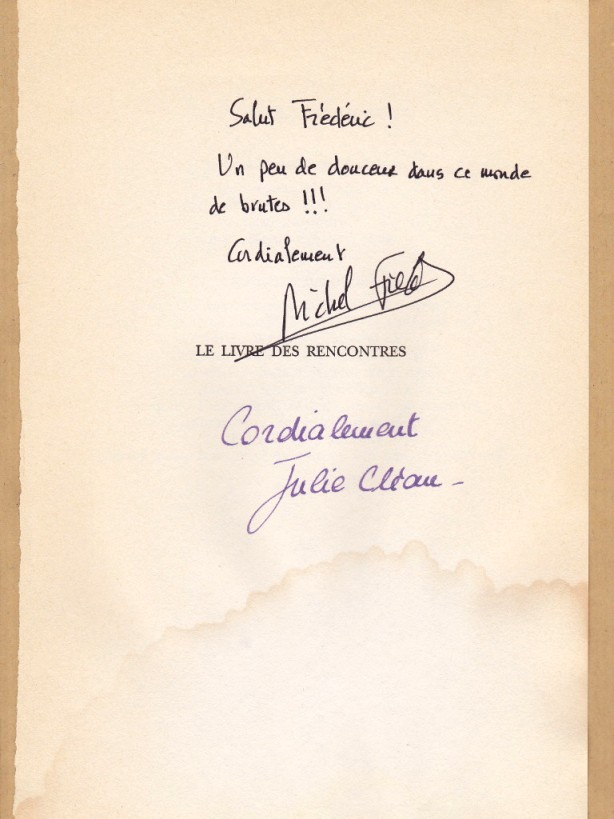 Salut Frédéric !
Un peu de douceur dans ce monde
de brutes !!!
Cordialement
Michel
LE LIVRE DES RENCONTRES
Cordialement
Julie